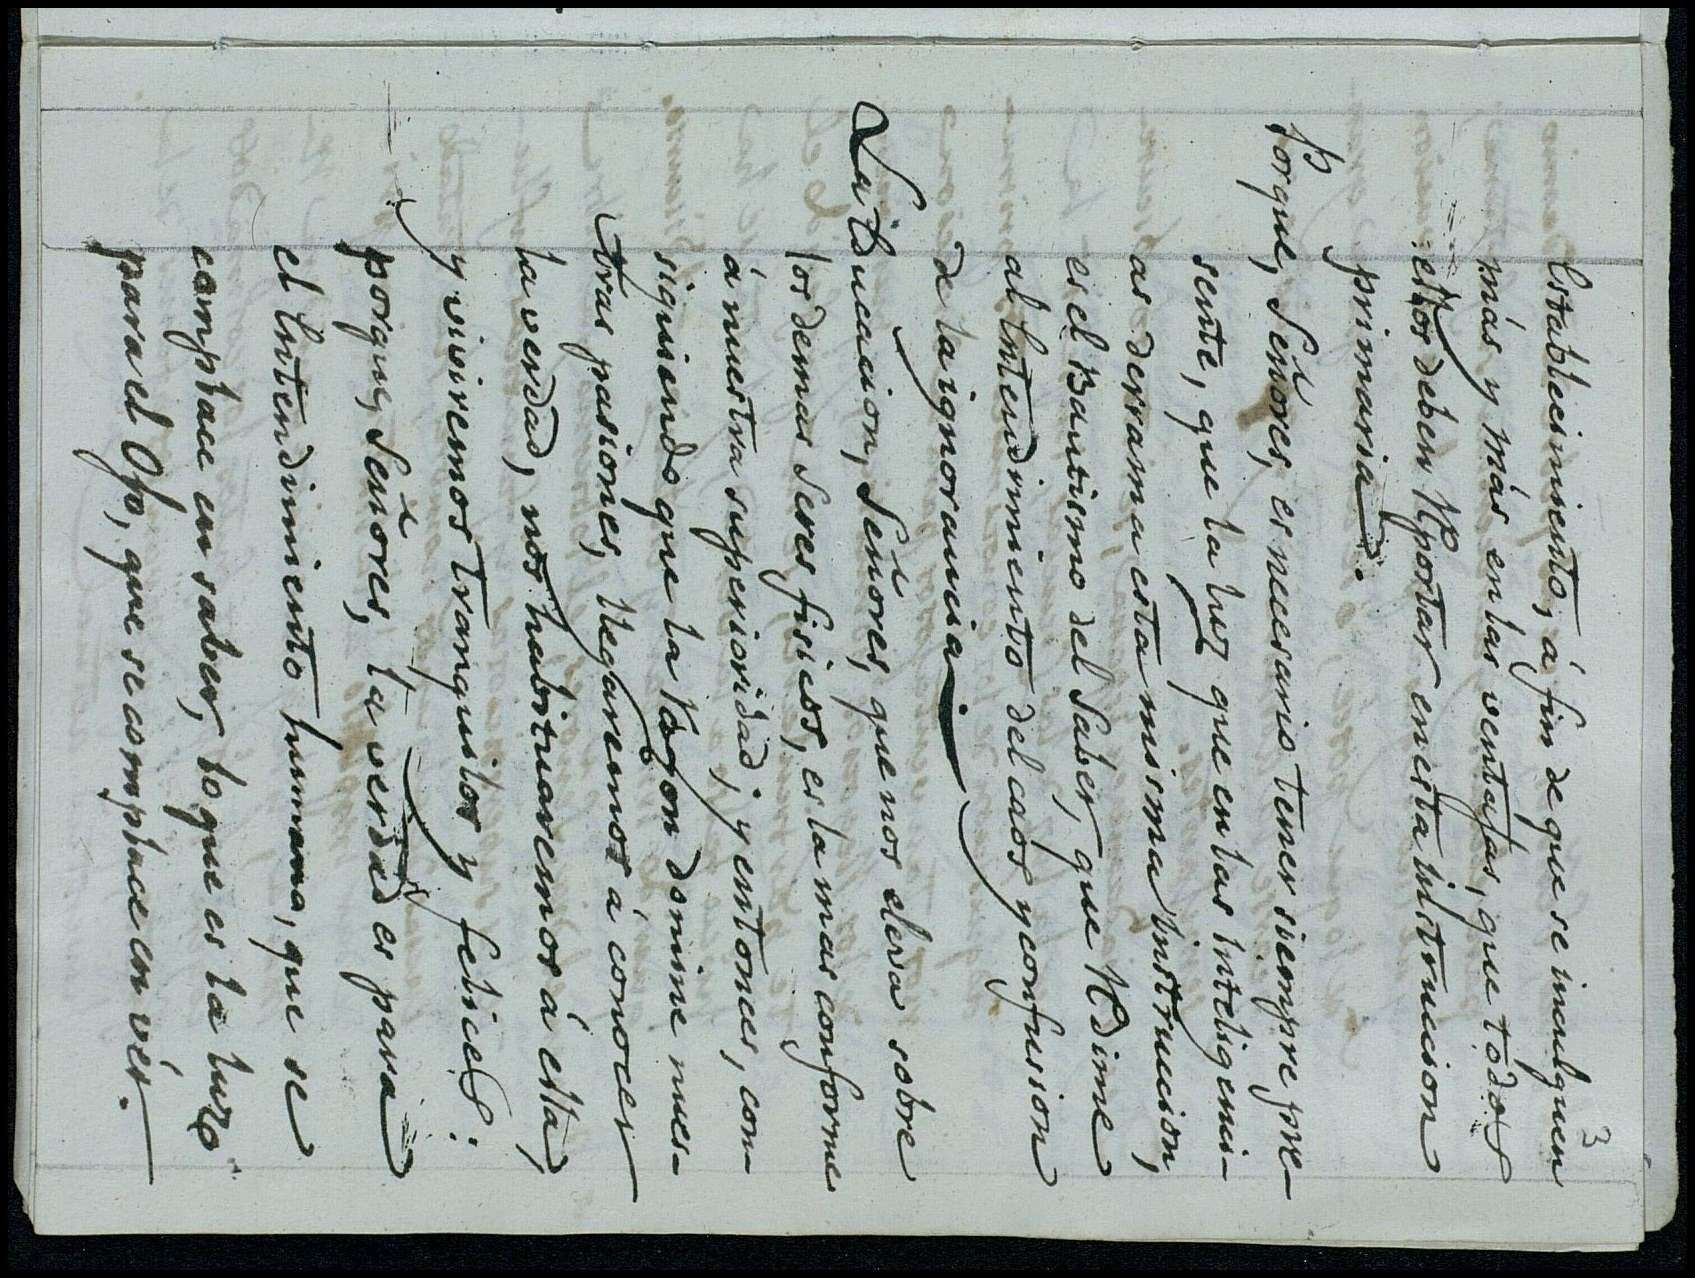 3
Establecimiento, á fin de que se inculquen
más y más en las ventajas, que todos
estos deben Reportar en esta instruccion
primaria.
Porque, Señores, es necesario tener siempre pre-
sente, que la luz que en las inteligenci-
as derrama esta misma instruccion,
es el Bautismo del Saber, que Redime
al Entendimiento del caos y confusion
de la ignorancia.
La Educacion, Señores, que nos eleva sobre
los demas Seres fisicos, es la mas conforme
á nuestra superioridad; y entonces, con-
siguiendo que la Razon domine nues-
tras pasiones, llegaremos á conocer
la verdad, nos habituaremos á ella,
y viviremos tranquilos y felices:
porque, Señores, la verdad es para
el Entendimiento humano, que se
complace en saber, lo que es la luz
para el Ojo, que se complace en vér.